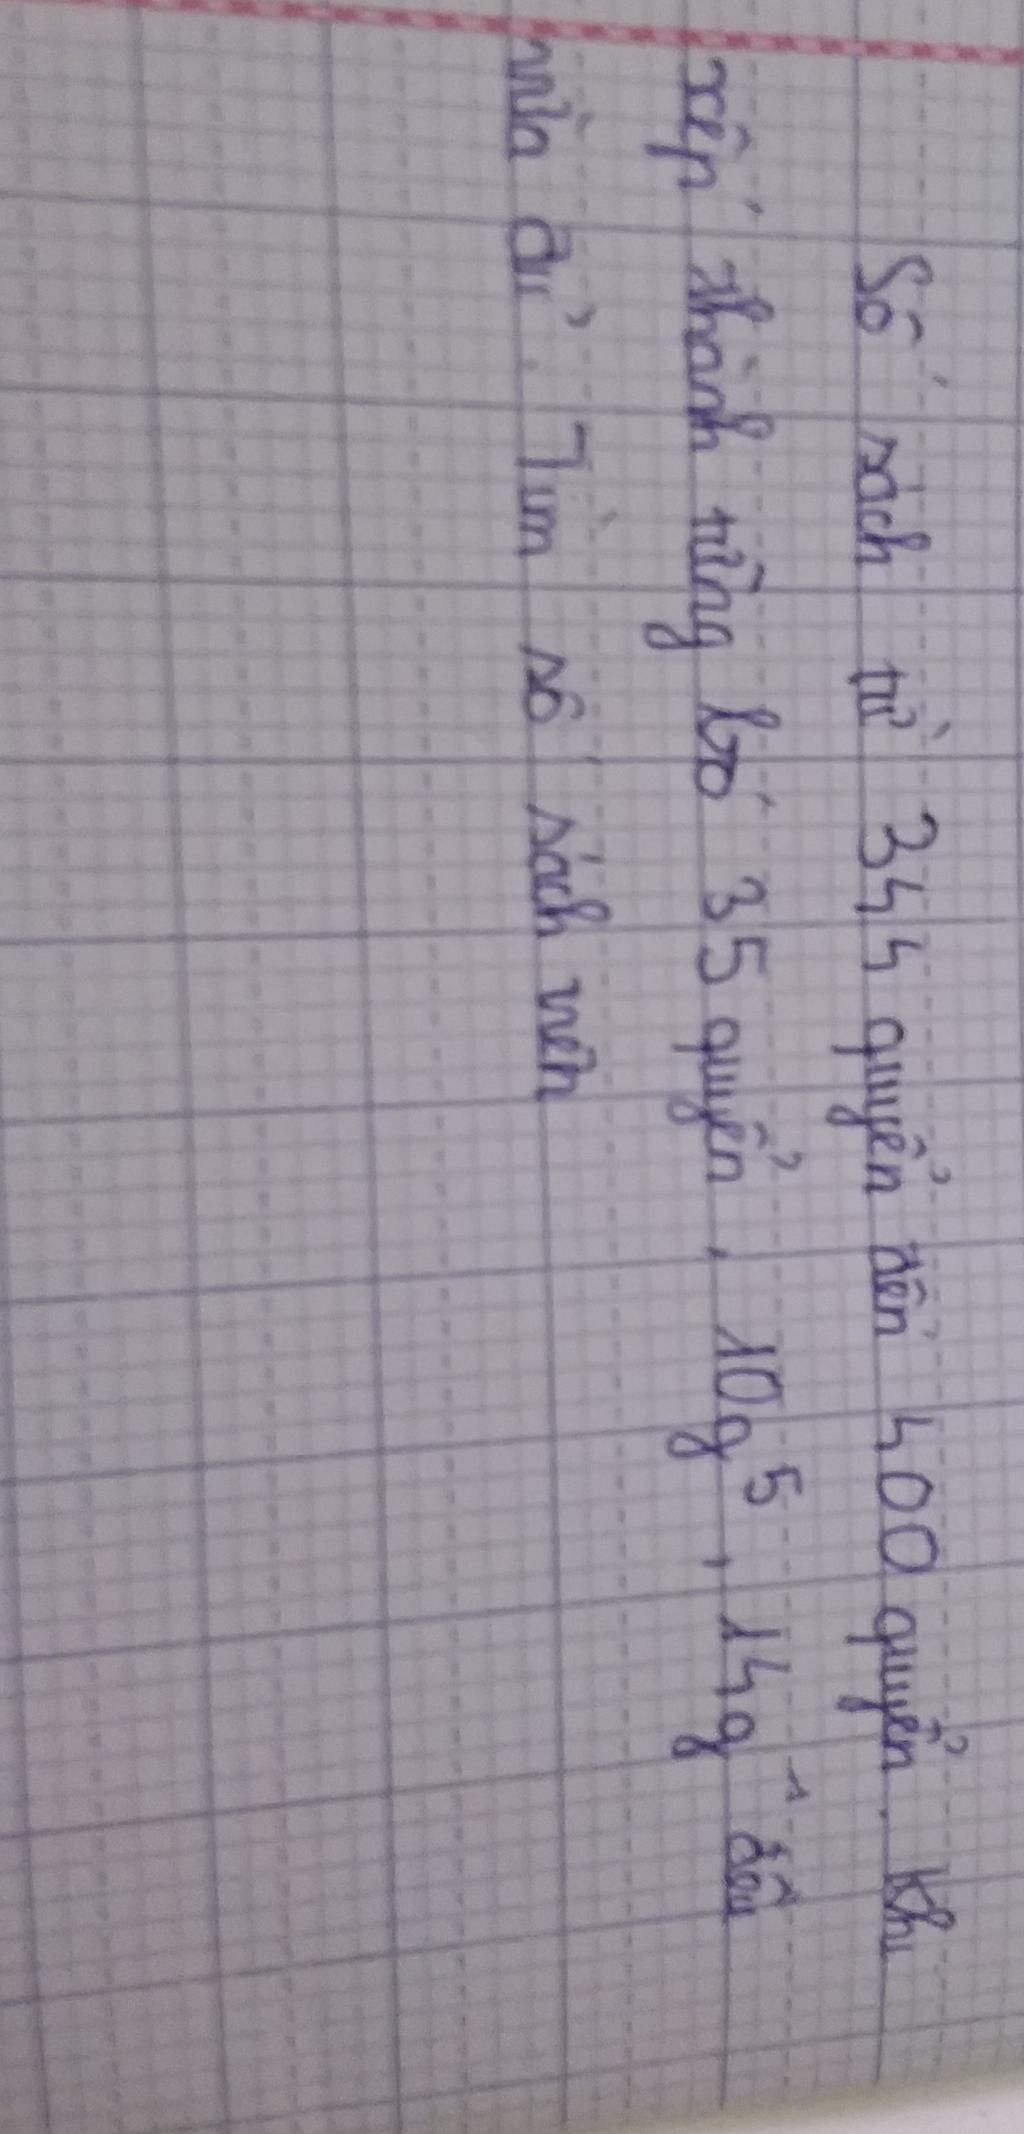 Số sách từ 344 quyển đến 400 quyển. Khi
xếp thành từng bó 35 quyển, 10q⁵, 14q⁻¹ đều
vừa đủ. Tìm số sách trên